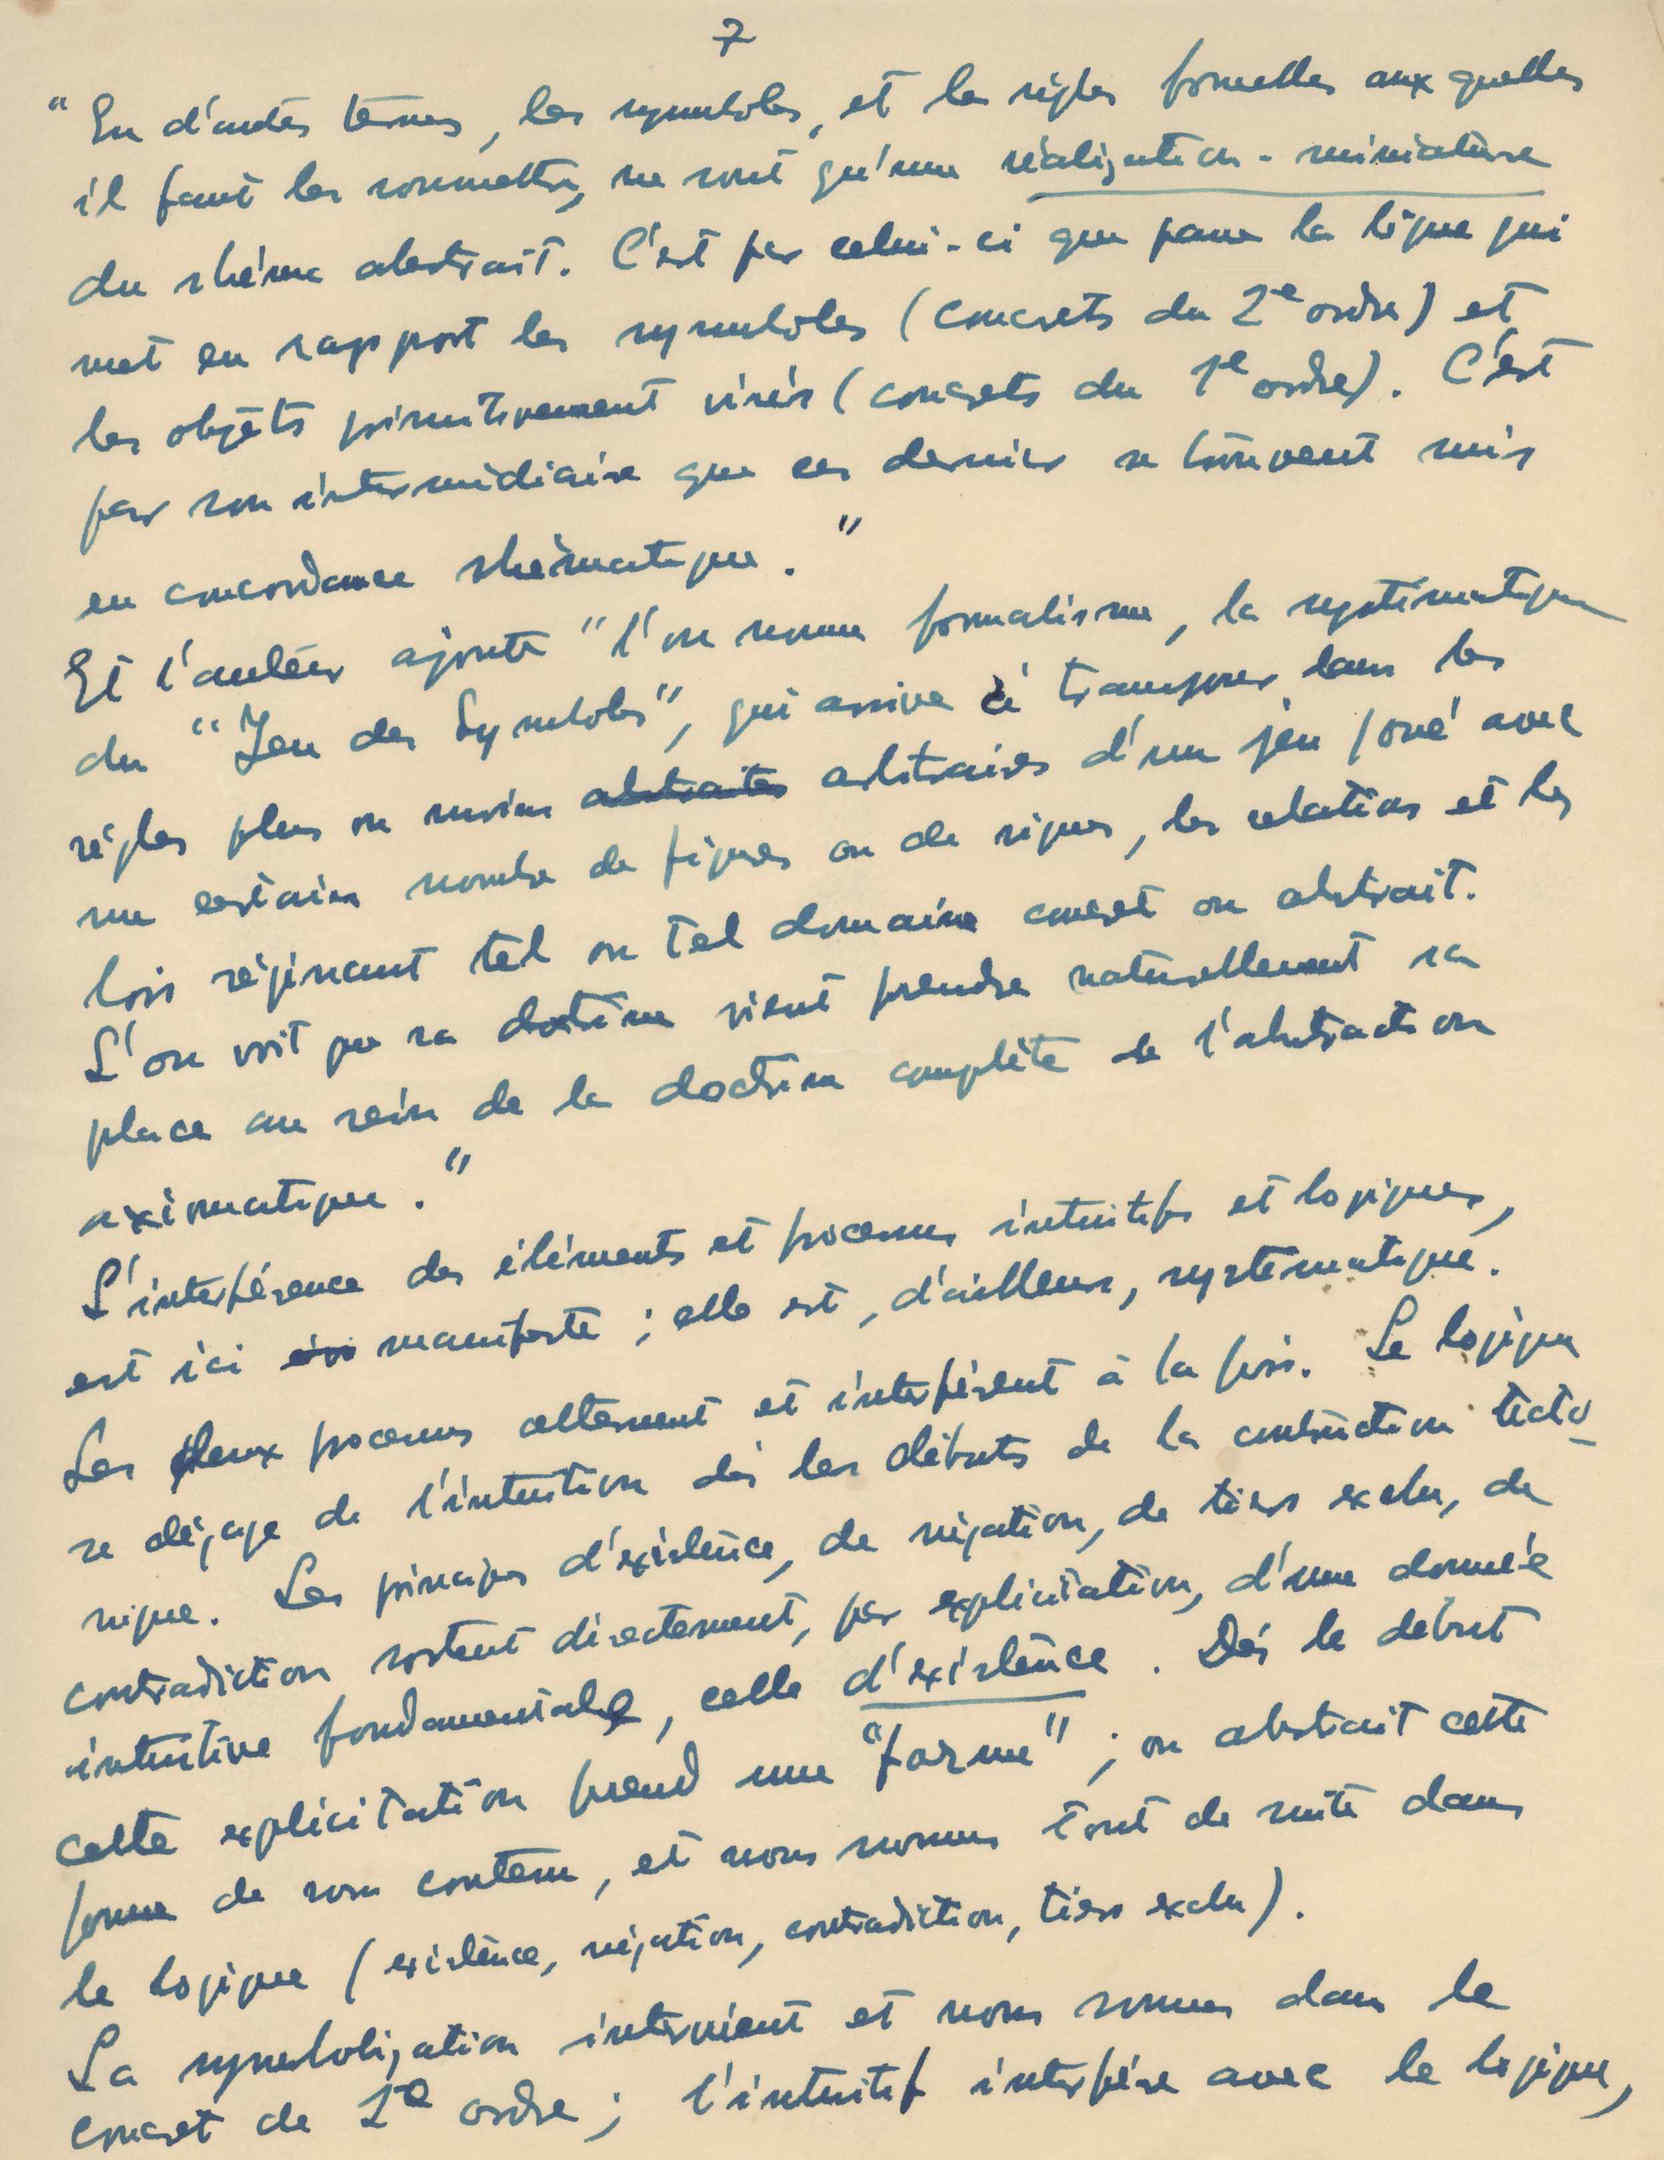 7
" En d'autes termes, les symboles, et les règles formelles aux quelles
il faut les soumettre, ne sont qu'une réalisation-miniature
du shéma abstrait. C'est par celui-ci que passe la ligne qui
met en rapport les symboles (concrets du 2e ordre) et
les objets primitivement visés (concrets du 1e ordre). C'est
par son intermédiaire que ces dernier se trouvent mis
en concordance shématique. "
Et l'auteur ajoute " l'on nomme formalisme, la systématique
du " Jeu des Symboles", qui arrive à transposer dans les
règles plus ou moins abstraites arbitraires d'un jeu joué avec
un certain nombre de figures ou de signes, les relations et les
lois régissant tel ou tel domaine concret ou abstrait.
L'on voit que sa doctrine vient prendre naturellement sa
place au sein de la doctrine complète de l'abstraction
aximatique. "
L'interférence des éléments et processus intuitifs et logiques,
est ici manifeste ; elle est, d'ailleurs, systématique.
Les deux processus alternent et interfèrent à la fois. Le logique
se dégage de l'intuition dès les débuts de la construction tecto-
nique. Les principes d'existence, de négation, de tiers exclu, de
contradiction sortent directement, par explicitation, d'une donnée
intuitive fondamentale, celle d'existence. Dès le début
cette explicitation prend une "forme" ; on abstrait cette
forme de son contenu, et nous sommes tout de suite dans
le logique (existence, négation, contradiction, tiers exclu).
La symbolisation intervient et nous sommes dans le
concret de 2e ordre ; l'intuitif interfère avec le logique,